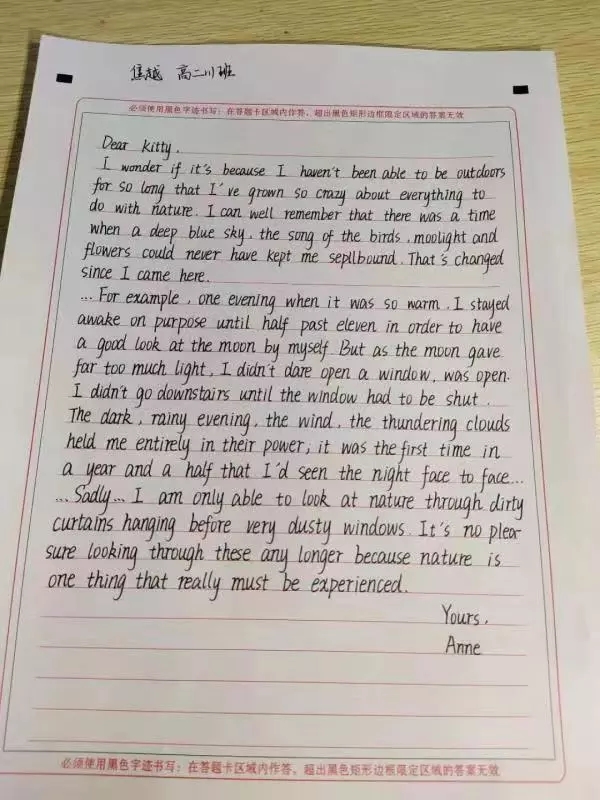 焦越 高二11班
必须使用黑色字迹书写；在答题卡区域内作答，超出黑色矩形边框限定区域的答案无效
Dear kitty,
I wonder if it's because I haven't been able to be outdoors
for so long that I've grown so crazy about everything to
do with nature. I can well remember that there was a time
when a deep blue sky, the song of the birds, moolight and
flowers could never have kept me sepllbound. That's changed
since I came here.
...For example, one evening when it was so warm, I stayed
awake on purpose until half past eleven in order to have
a good look at the moon by myself. But as the moon gave
far too much light, I didn't dare open a window, was open.
I didn't go downstairs until the window had to be shut.
The dark, rainy evening, the wind, the thundering clouds
held me entirely in their power; it was the first time in
a year and a half that I'd seen the night face to face...
...Sadly... I am only able to look at nature through dirty
curtains hanging before very dusty windows. It's no plea
sure looking through these any longer because nature is
one thing that really must be experienced.
Yours,
Anne
必须使用黑色字迹书写；在答题卡区域内作答，超出黑色矩形边框限定区域的答案无效